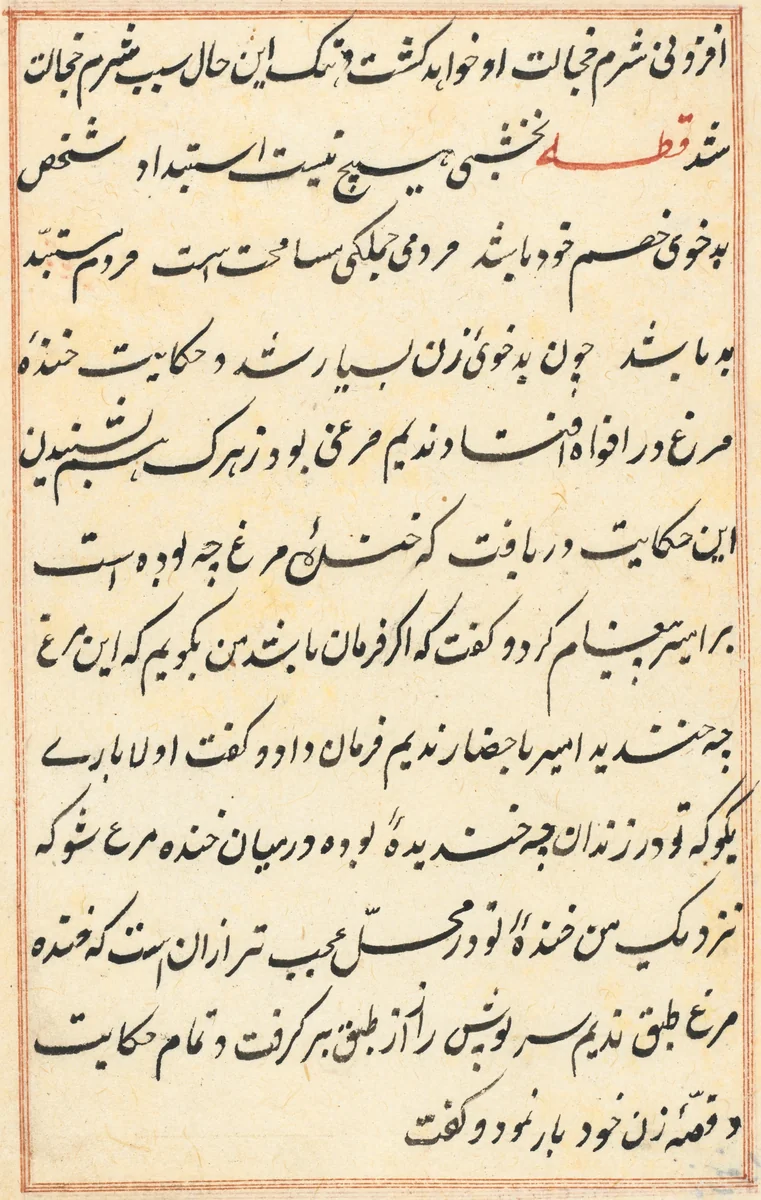 افزونی شرم خجالت او خواهد کشت و هتک این حال سبب شرم خجالت
شد قطعه نخشبی هیچ نیست استبداد شخص
بدخوی خصم خود باشد مردمی جملکی مسامحت است مردم مستبدّ
بد باشد چون بدخوئ زن بسیار شد و حکایت خندهٔ
مرغ در افواه افتاد و ندیم مرغی بود زیرک هم بشنیدن
این حکایت دریافت که خندهٔ مرغ چه بوده است
بر امیر پیغام کرد و کفت که اکر فرمان باشد من بکویم که این مرغ
چه خندید امیر باحضار ندیم فرمان داد و کفت اولا بارے
بکو که تو در زندان چه خندیدهٔ بوده در میان خنده مرغ شو که
نزدیک من خندهٔ تو در محلّ عجیب تر ازان است که خنده
مرغ طبق ندیم سرپوش راز از طبق بر کرفت و تمام حکایت
و قصّهٔ زن خود باز نمود و کفت